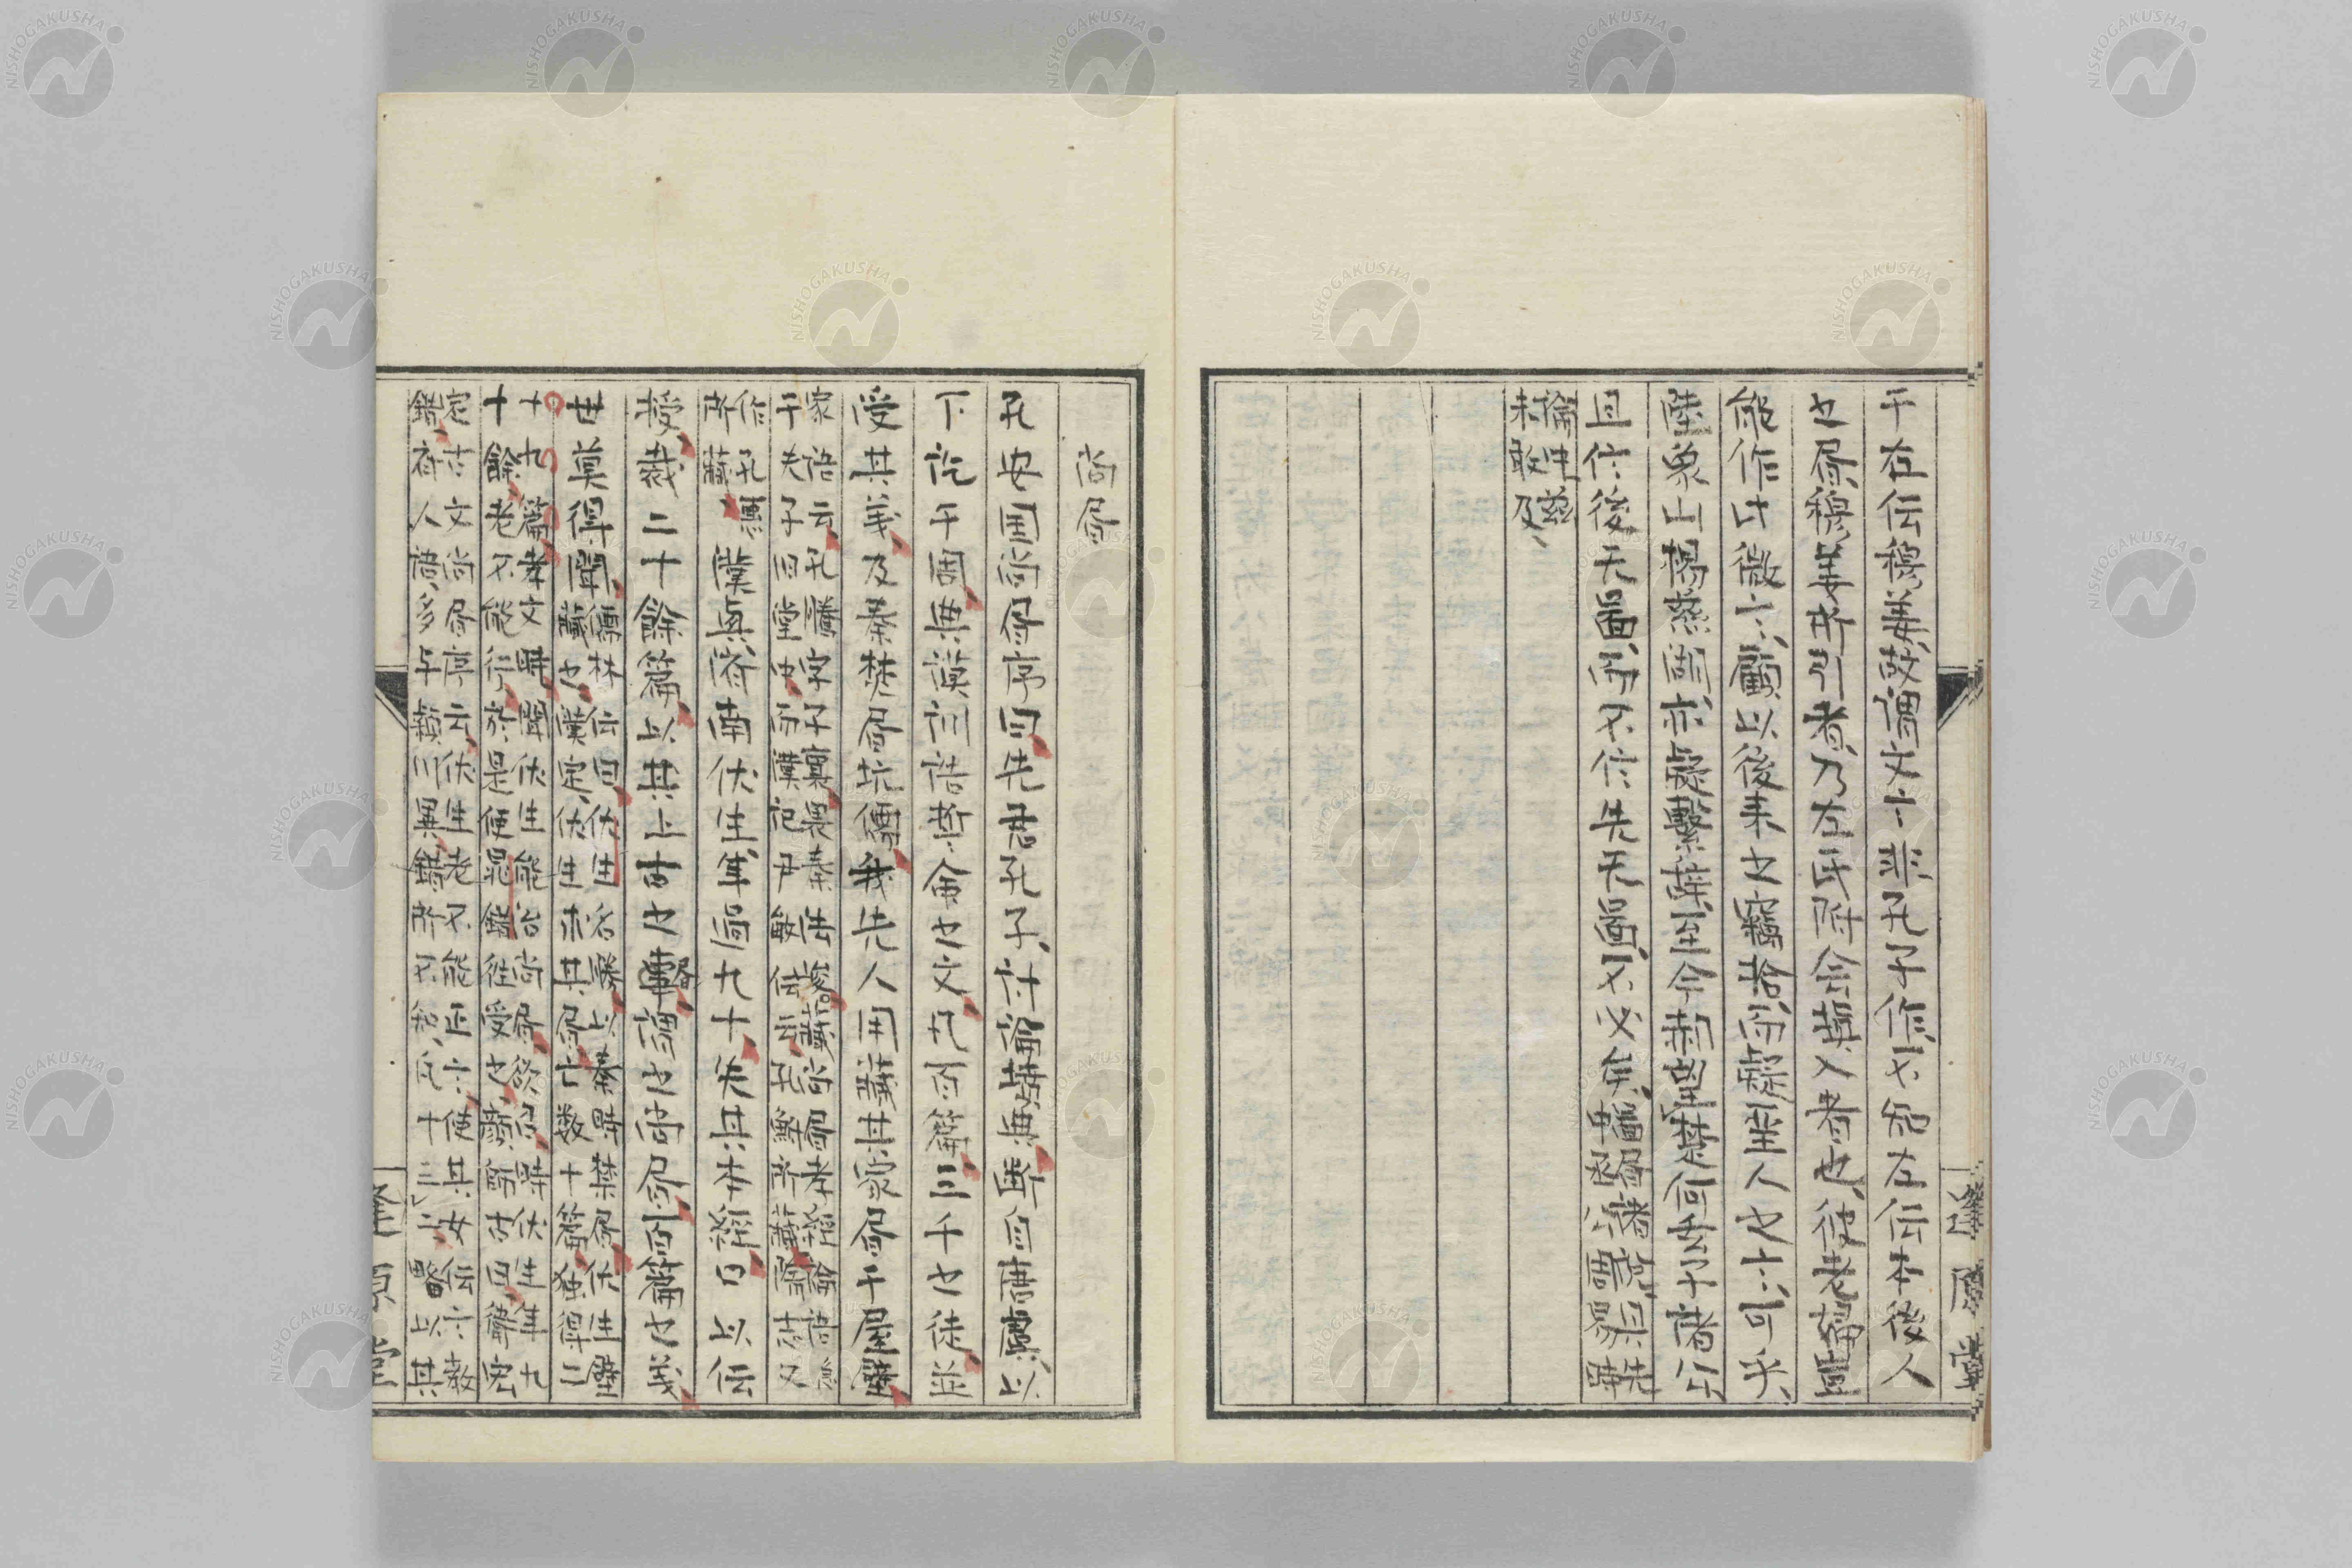 于左伝穆姜故謂文言非孔子作不知左伝本後人
之㞐穆姜所引者乃左氏附会撰入者也彼老婦豈
能作此微言顧以後来之竊拾而疑聖人之言可乎
陸象山楊慈湖亦疑繫辞至今荊
且伝後天圖而不伝先天圖
倫
未敢及
逢原堂
尚㞐
孔安国尚㞐序曰先君孔子討論墳典断自唐虞以
下訖于周典謨訓誥誓命之文凡百篇三千之徒並
受其義及秦焚㞐坑儒我先人用蔵其家㞐于屋壁
家語云孔騰字子襄畏秦法峻蔵尚㞐孝経論語
于夫子旧堂中而漢記尹敏伝云孔鮒所蔵
作孔
所蔵
漢興済南伏生年過九十失其本経口以伝
授裁二十餘篇以其上古之㞐謂之尚㞐百篇之義
世莫得聞
儒林伝曰伏生名勝以秦時禁㞐伏生壁
蔵之漢定伏生求其㞐亡数十篇独得二
十九篇孝文時聞伏生能治尚㞐欲召時伏生年九
十餘老不能行於是使晁錯往受之顔師古曰衛宏
定古文尚㞐序云伏生老不能正言使其女伝言教
錯斉人語多与頴川異錯所不知凡十二三略以其
逢原堂